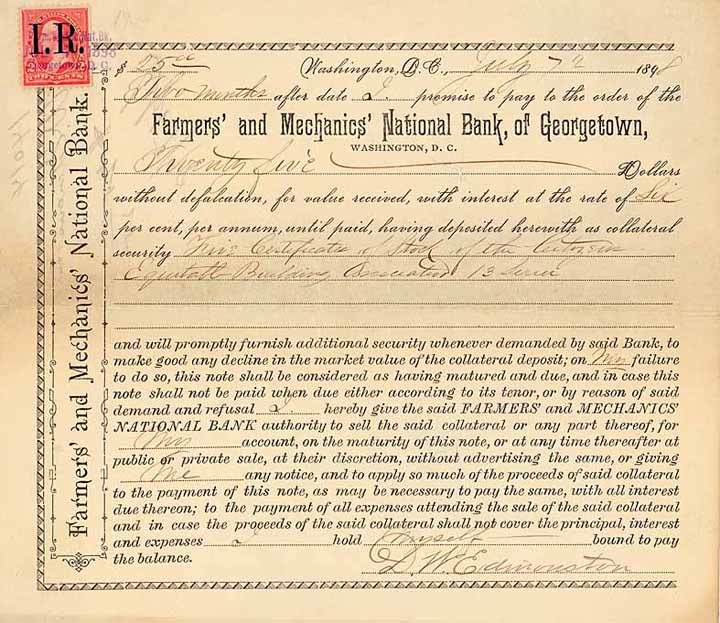 I. R.
TWO CENTS
1898
Georgetown, D.C.
Farmers' and Mechanics' National Bank.
$ 25.00 Washington, D.C., July 7th 1898
Two months after date I promise to pay to the order of the
Farmers' and Mechanics' National Bank, of Georgetown,
WASHINGTON, D. C.
Twenty five Dollars
without defalcation, for value received, with interest at the rate of Six
per cent, per annum, until paid, having deposited herewith as collateral
security Certificate of Stock of the Citizens
Equitable Building Association 13 Series
and will promptly furnish additional security whenever demanded by said Bank, to
make good any decline in the market value of the collateral deposit; on my failure
to do so, this note shall be considered as having matured and due, and in case this
note shall not be paid when due either according to its tenor, or by reason of said
demand and refusal I hereby give the said FARMERS' and MECHANICS'
NATIONAL BANK authority to sell the said collateral or any part thereof, for
my account, on the maturity of this note, or at any time thereafter at
public or private sale, at their discretion, without advertising the same, or giving
me any notice, and to apply so much of the proceeds of said collateral
to the payment of this note, as may be necessary to pay the same, with all interest
due thereon; to the payment of all expenses attending the sale of the said collateral
and in case the proceeds of the said collateral shall not cover the principal, interest
and expenses I hold myself bound to pay
the balance.
D. W. Edmonston